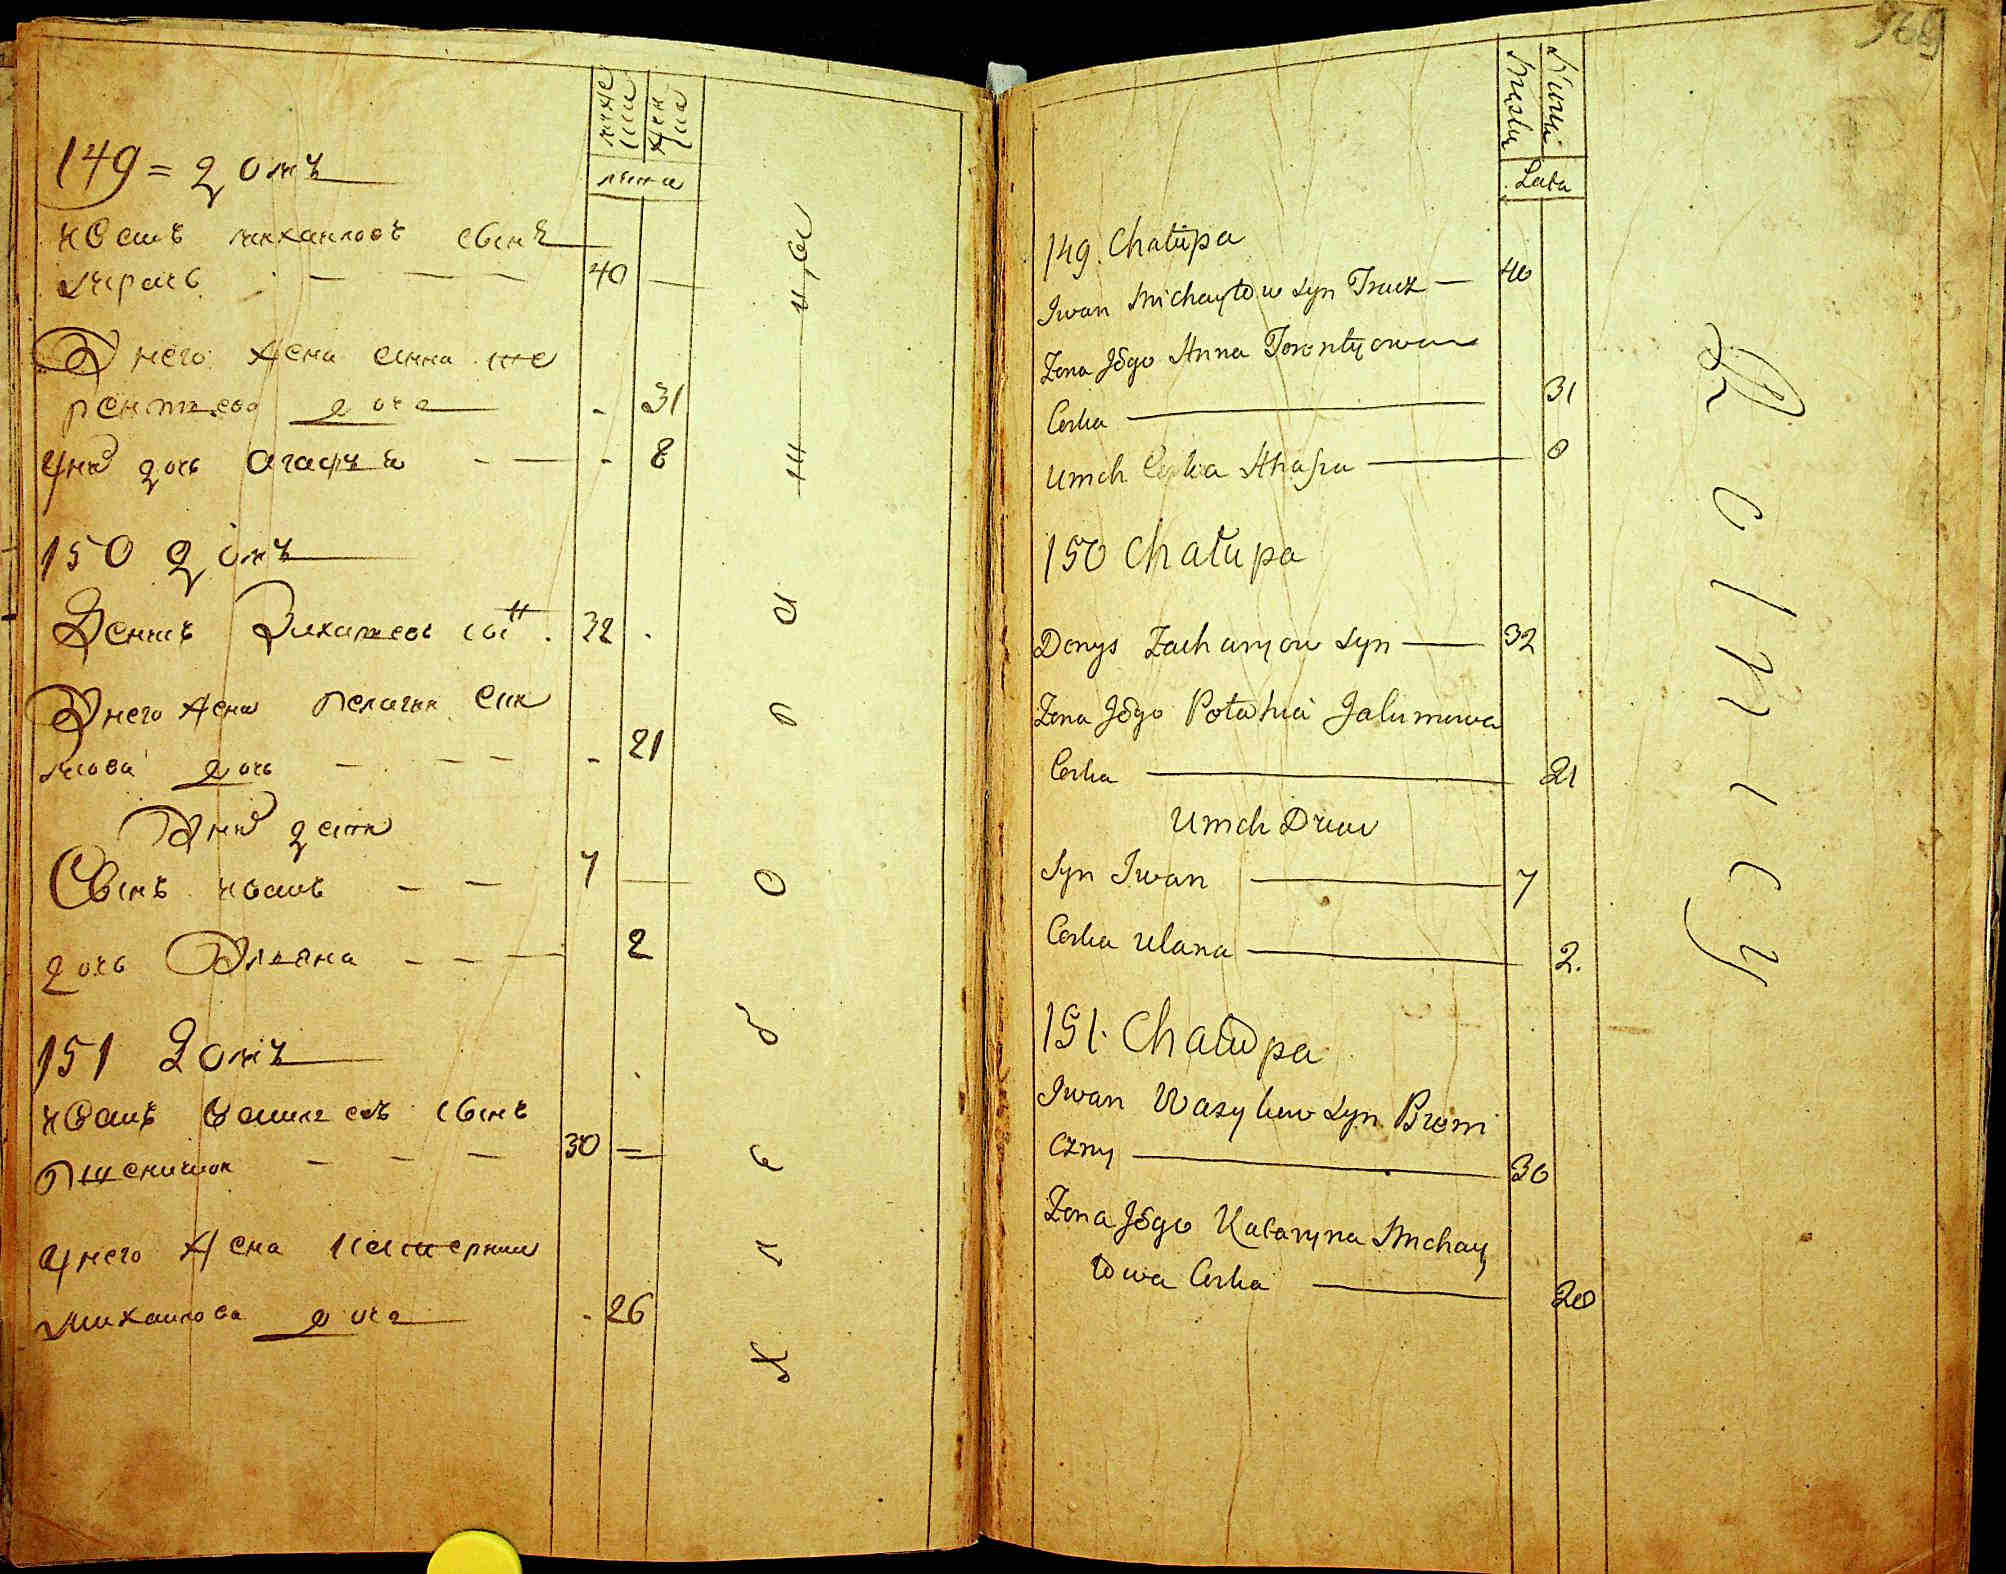 149 = домъ
иванъ михаиловъ свинъ
ткрачъ — — — 40 —
У него жена анна те
рентиева дочь - 31
У них дочь агафия — — - 8
150 домъ
Денисъ Захатиевъ сынъ . 32 .
У него жена пелагия
мова дочь — — — - 21
У них дети
Сынъ иванъ — — 7 —
дочь Улеяна — — — 2
151 домъ
иванъ василевъ сынъ
— — — 30 =
У него жена катерина
михаилова дочь - 26
лета
Хлеборапашца
969
Męska
Lata
149. Chałupa
Iwan Michayłow Syn Tracz — 40
Żona Jégo Anna Torentyowa
Corka — 31
Umich Corka Ahafia — 8
150 Chałupa
Denys Zacharyow Syn — 32
Żona Jégo Połahia Jakimowa
Corka — 21
Umich Dzieci
Syn Iwan — 7
Corka Ulana — 2.
151. Chałupa
Iwan Wasylew Syn Przeni
czny — 30
Żona Jégo Kataryna Michay
łowa Corka — 20
Rolnicy